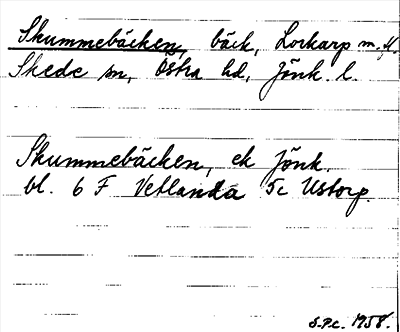 Skummebäcken, bäck, Lorkarp m.fl.
Skede sn, Östra hd, Jönk. l.
Skummebäcken, ek Jönk.
bl. 6 F Vetlanda 5c Ustorp.
S.P.C. 1958.